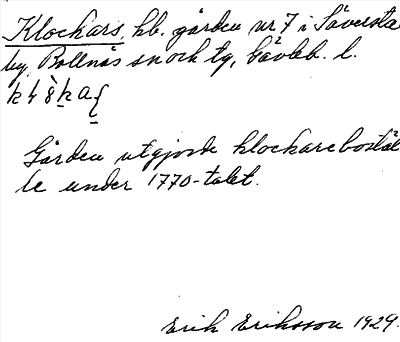 Klockars, hb. gården nr 7 i Säversta
by, Bollnäs snock tg, Gävleb. l.
Gården utgjorde klockarebostäl
le under 1770-talet.
Erik Eriksson 1929.